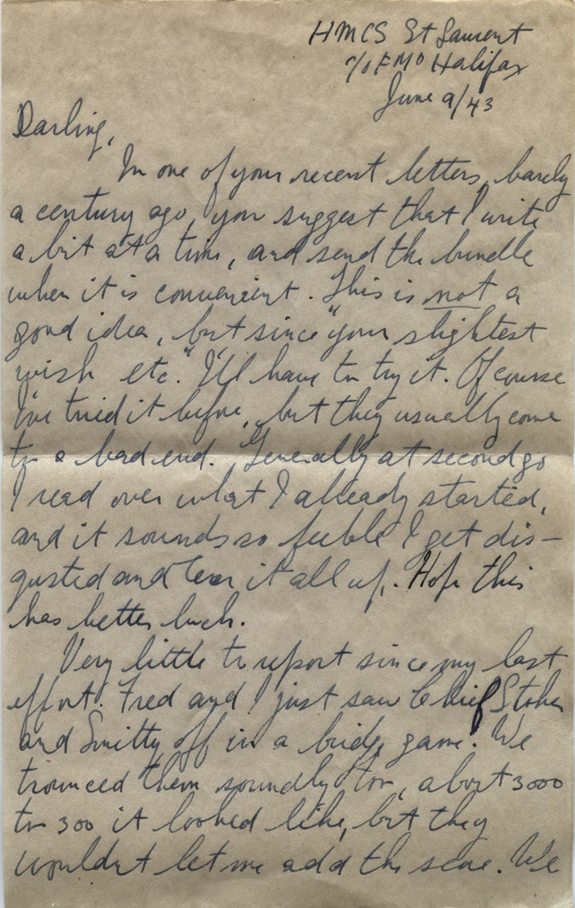 HMCS St Laurent
c/o FMO Halifax
June 9/43
Darling,
In one of your recent letters, barely
a century ago, you suggest that I write
a bit at a time, and send the bundle
when it is convenient. This is not a
good idea, but since "your slightest
wish etc." I'll have to try it. Of course
I've tried it before, but they usually come
to a bad end. Generally at second go
I read over what I already started,
and it sounds so feeble I get dis-
gusted and tear it all up. Hope this
has better luck.
Very little to report since my last
effort. Fred and I just saw Chief Stoker
and Smitty off in a bridge game. We
trounced them soundly too, about 3000
to 300 it looked like, but they
wouldn't let me add the score. We